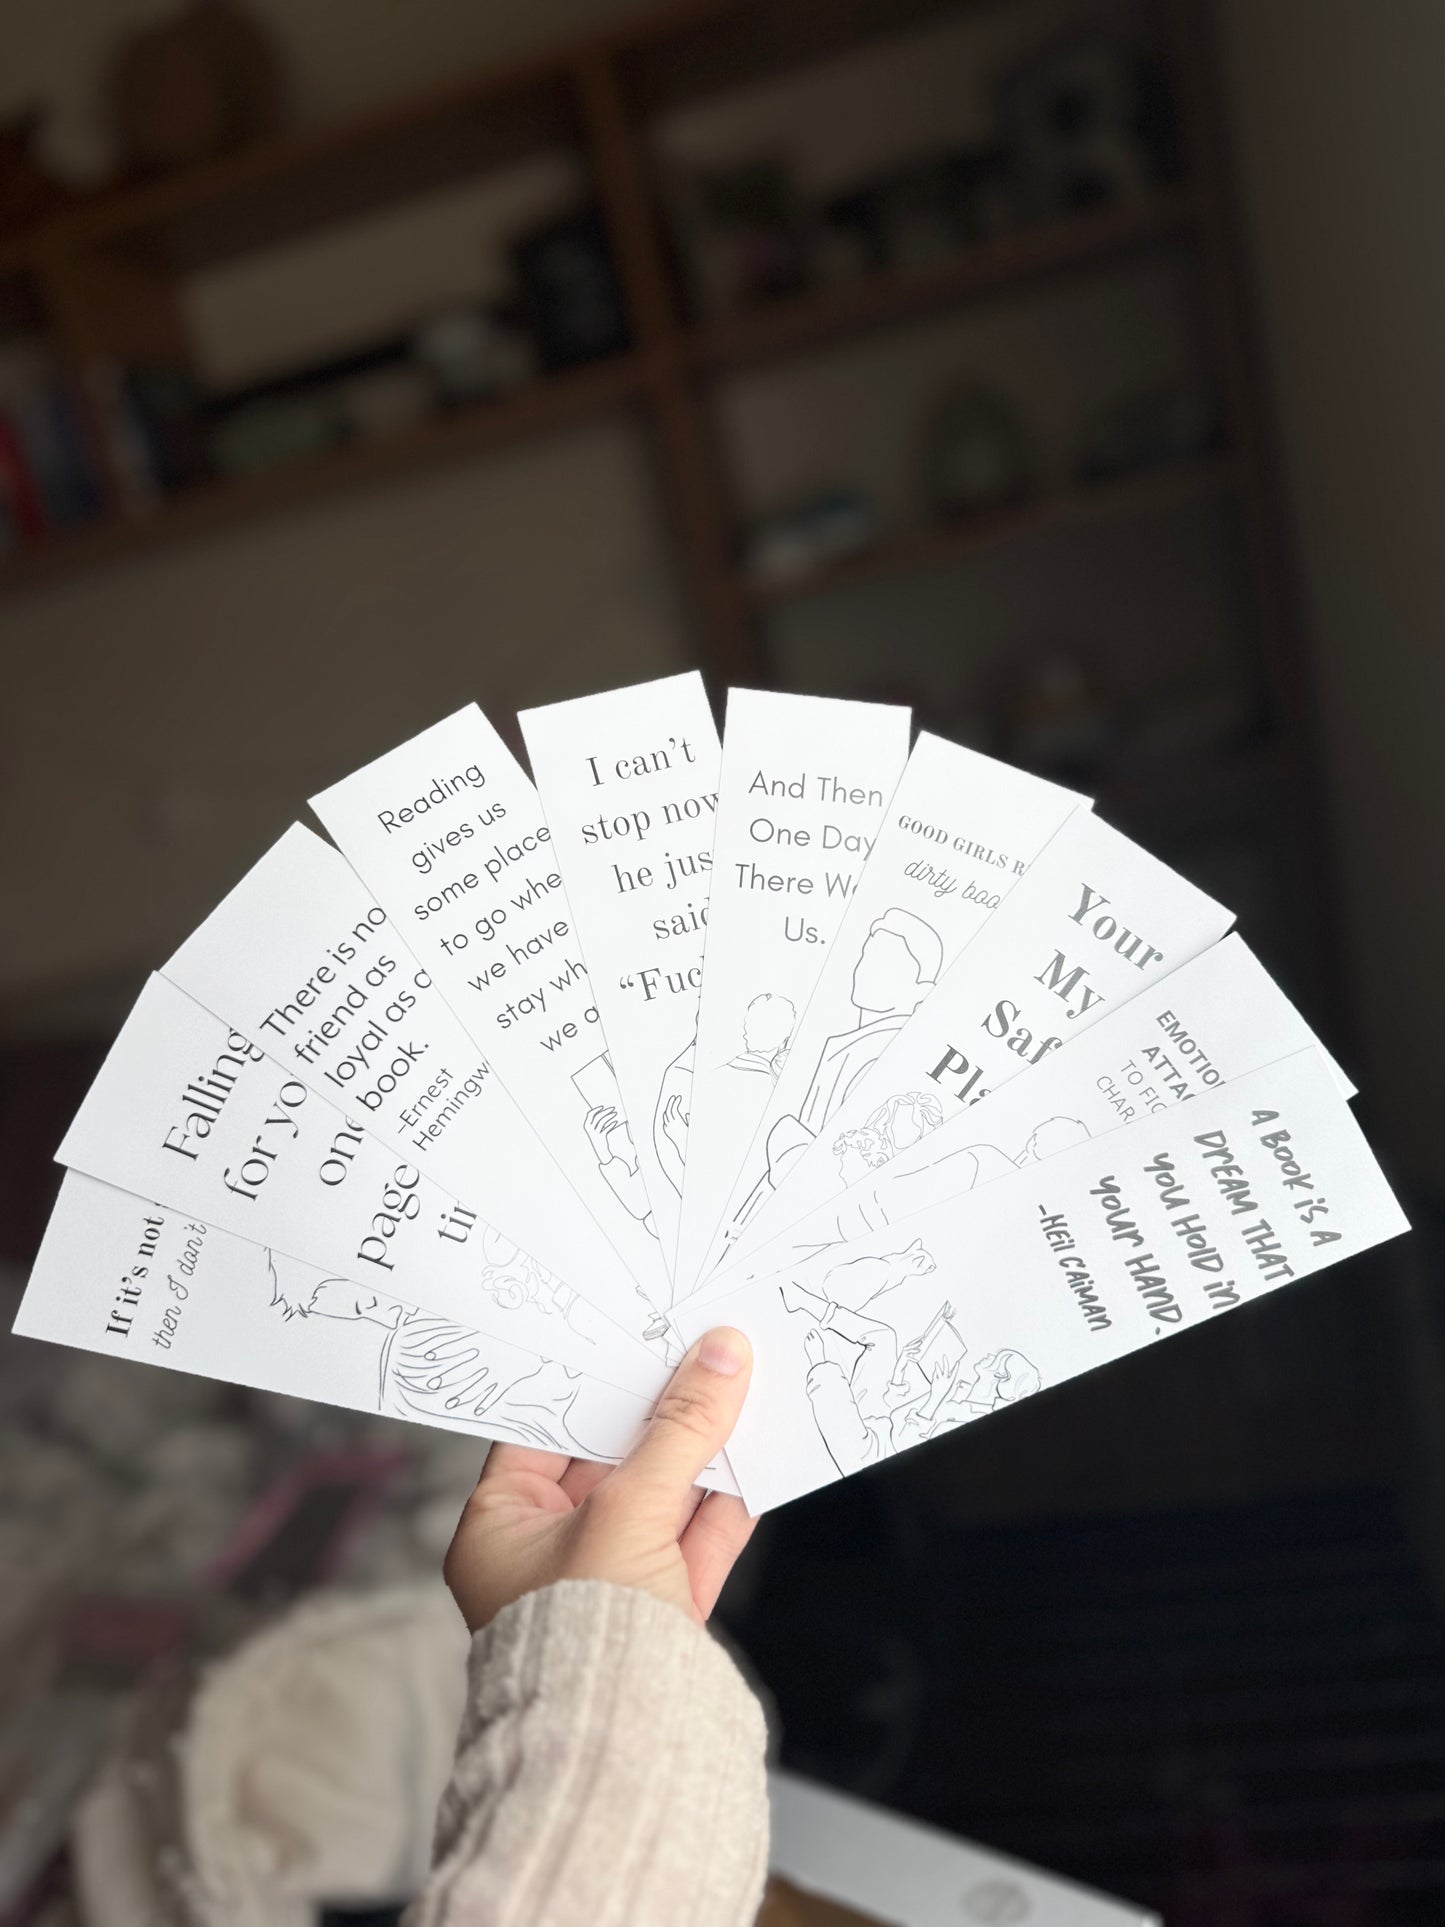 If it's not
then I don't
Falling
for yo
one
page
ti
There is no
friend as
loyal as a
book.
-Ernest
Hemingw
Reading
gives us
some place
to go whe
we have
stay wh
we a
I can't
stop now
he jus
said
“Fuc
And Then
One Day
There We
Us.
GOOD GIRLS R
dirty boo
Your
My
Saf
Pla
EMOTIO
ATTAC
TO FIC
CHAR
A BOOK iS A
DREAM THAT
YOU HOLD iN
YOUR HAND.
-NEiL GAiMAN